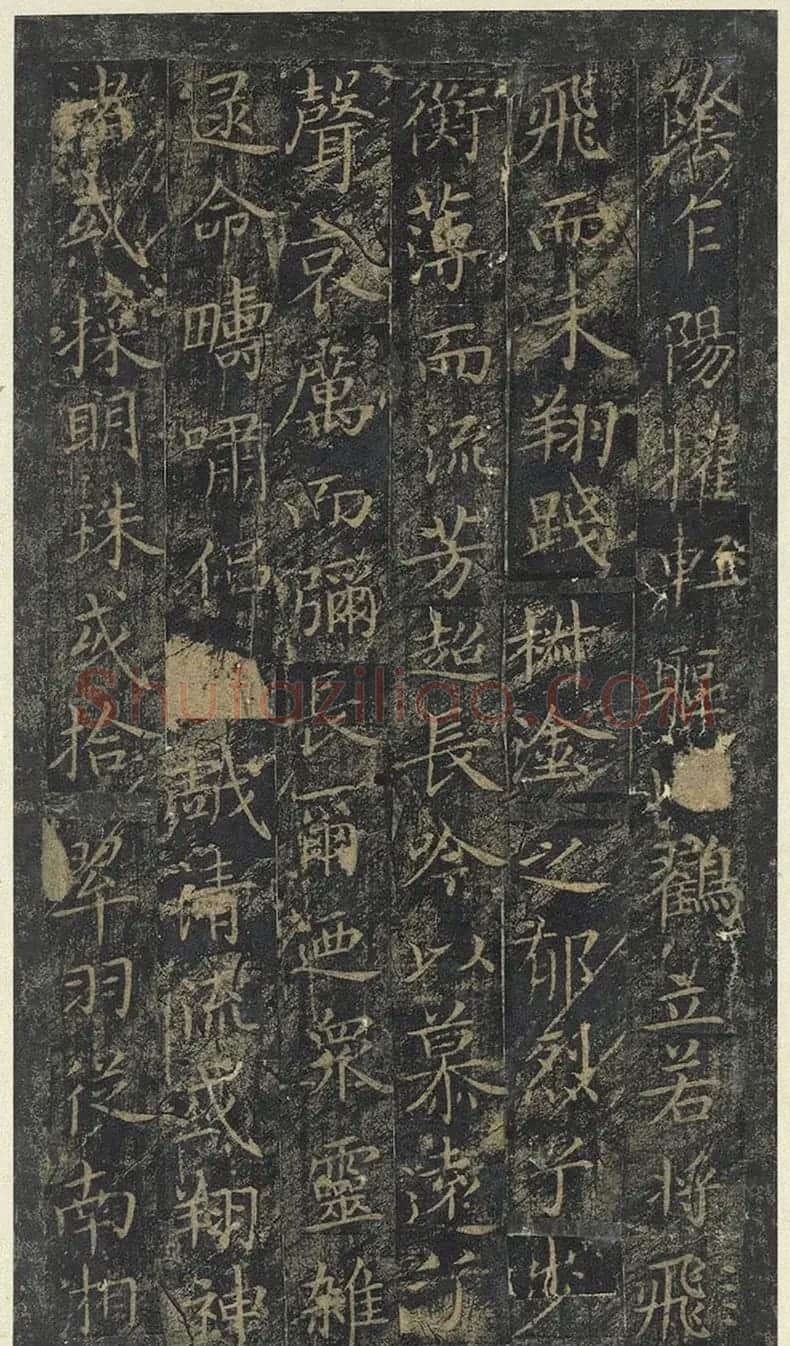 陰乍陽擢輕軀以鶴立若將飛
飛而未翔踐椒塗之郁烈兮步
衡薄而流芳超長吟以慕遠兮
聲哀厲而彌長爾迺眾靈雜
逯命疇嘯侶戲清流或翔神
渚或採明珠或拾翠羽從南湘
Shufaziliao.COM